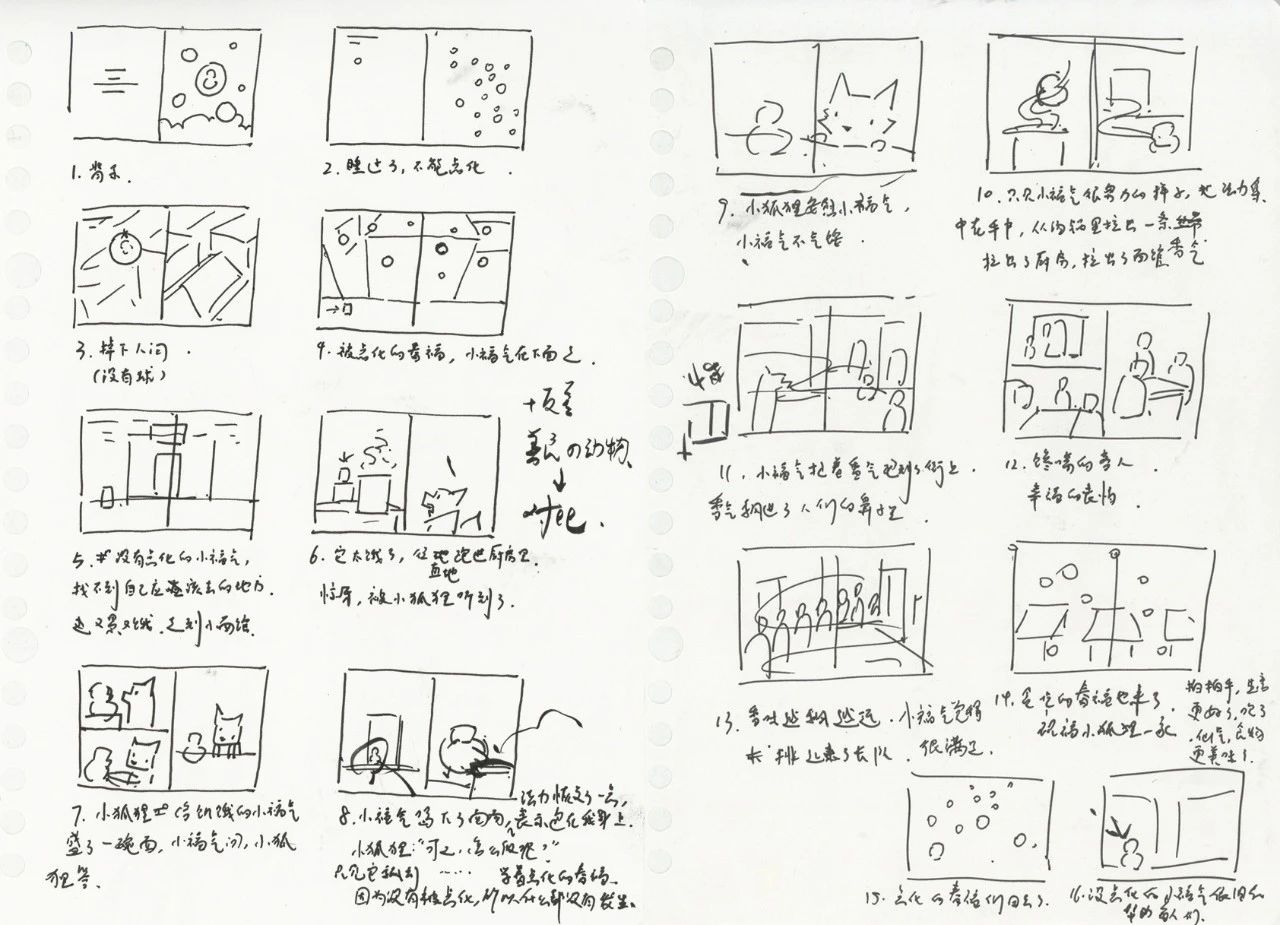 1. 背景.
2. 睡过了,不能点化
3. 掉下人间.
(没有球)
4. 被点化的春福,小福气在下面走.
5. 没有点化的小福气,
找不到自己应该去的地方.
又累又饿.走到小面馆.
6. 它太饿了,径直地跑进厨房里.
被小狐狸听到了.
+反差
→
7. 小狐狸给饥饿的小福气
盛了一碗面,小福气问,小狐
狸答.
8. 小福气喝下了面肉,法力恢复了一点,表示包在我身上.
小狐狸:"可是,怎么做呢?"
只见它 …… 学着点化的春福.
因为没有被点化,所以什么都没有发生.
9. 小狐狸安慰小福气,
小福气不气馁
10. 只见小福气很努力的样子,把法力集
中在手中,从的锅里拉出一条香气
拉出了厨房,拉出了面馆
11. 小福气拉着香气跑到了街上
香气飘进了人们的鼻子里.
12. 馋嘴的客人.
幸福的表情
13. 香味越飘越远.小福气觉得
排起来了长队.很满足.
14. 的春福也来了
祝福小狐狸一家
拍拍手,生意
更好了,吹了
仙气,食物
更美味了.
15. 点化的春福们回去了.
16. 没点化的小福气
帮助着人们.